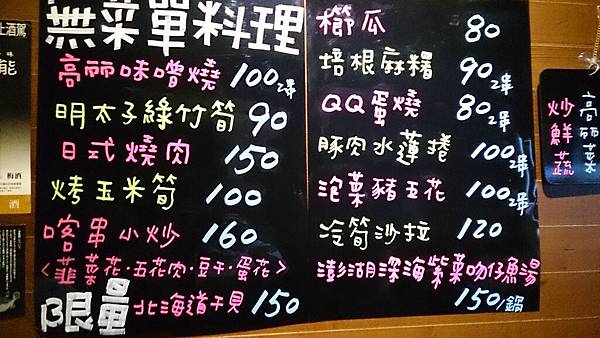 無菜單料理
高丽味噌燒 100 2串
明太子綠竹筍 90
日式燒肉 150
烤玉米筍 100
喀串小炒 160
<韮菜花·五花肉·豆干·蛋花>
限量 北海道干貝 150
櫛瓜 80
培根麻糬 90 2串
QQ蛋燒 80 2串
豚肉水蓮捲 100 2串
泡菜豬五花 100 2串
冷筍沙拉 120
澎湖深海紫菜吻仔魚湯
150/鍋
高丽菜
炒鮮蔬
能
梅酒
酒